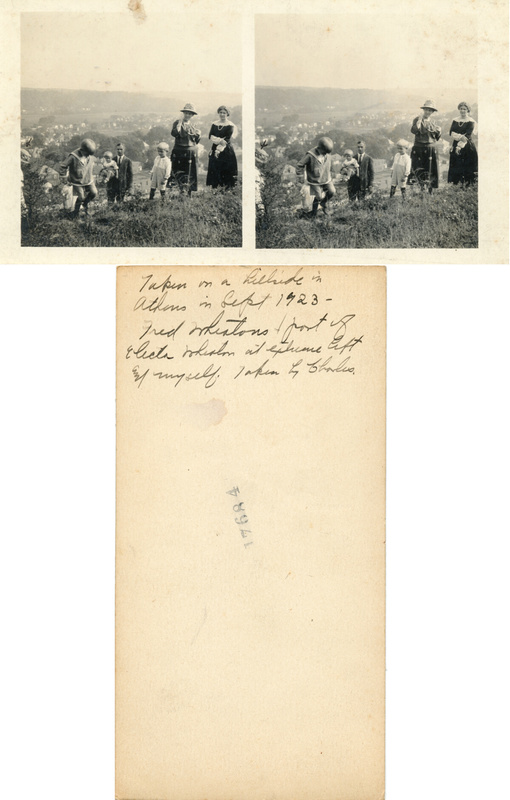 Taken on a hillside in
Athens in Sept 1923-
Fred Wheatons & part of
Electa Wheaton at extreme left
and myself. Taken by Charles.
17684